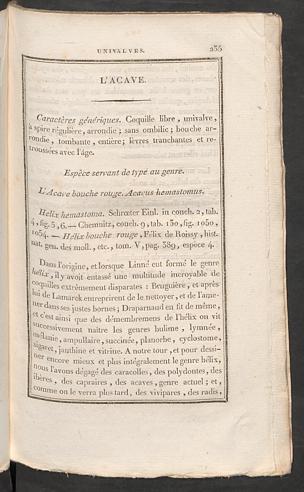 UNIVALVES. 235
L'ACAVE.
Caractères génériques. Coquille libre, univalve,
à spire régulière, arrondie; sans ombilic; bouche ar-
rondie, tombante, entière; lèvres tranchantes et re-
troussées avec l'âge.
Espèce servant de type au genre.
L'Acave bouche rouge. Acavus hemastomus.
Helix hemastoma. Schrœter Einl. in conch. 2, tab.
4, fig. 5, 6. — Chemnitz, conch. 9, tab. 150, fig. 1050,
1054. — Hélix bouche rouge, Félix de Roissy, hist.
nat. gen. des moll., etc., tom. V, pag. 389, espèce 4.
Dans l'origine, et lorsque Linné eut formé le genre
hélix, il y avoit entassé une multitude incroyable de
coquilles extrêmement disparates : Bruguière, et après
lui de Lamarck entreprirent de le nettoyer, et de l'ame-
ner dans ses justes bornes; Draparnaud en fit de même,
et c'est ainsi que des démembremens de l'hélix on vit
successivement naître les genres bulime, lymnée,
mélanie, ampullaire, succinée, planorbe, cyclostome,
sigaret, janthine et vitrine. A notre tour, et pour dessi-
ner encore mieux et plus intégralement le genre hélix,
nous l'avons dégagé des caracolles, des polydontes, des
ibères, des capraires, des acaves, genre actuel; et,
comme on le verra plus tard, des vivipares, des radis,